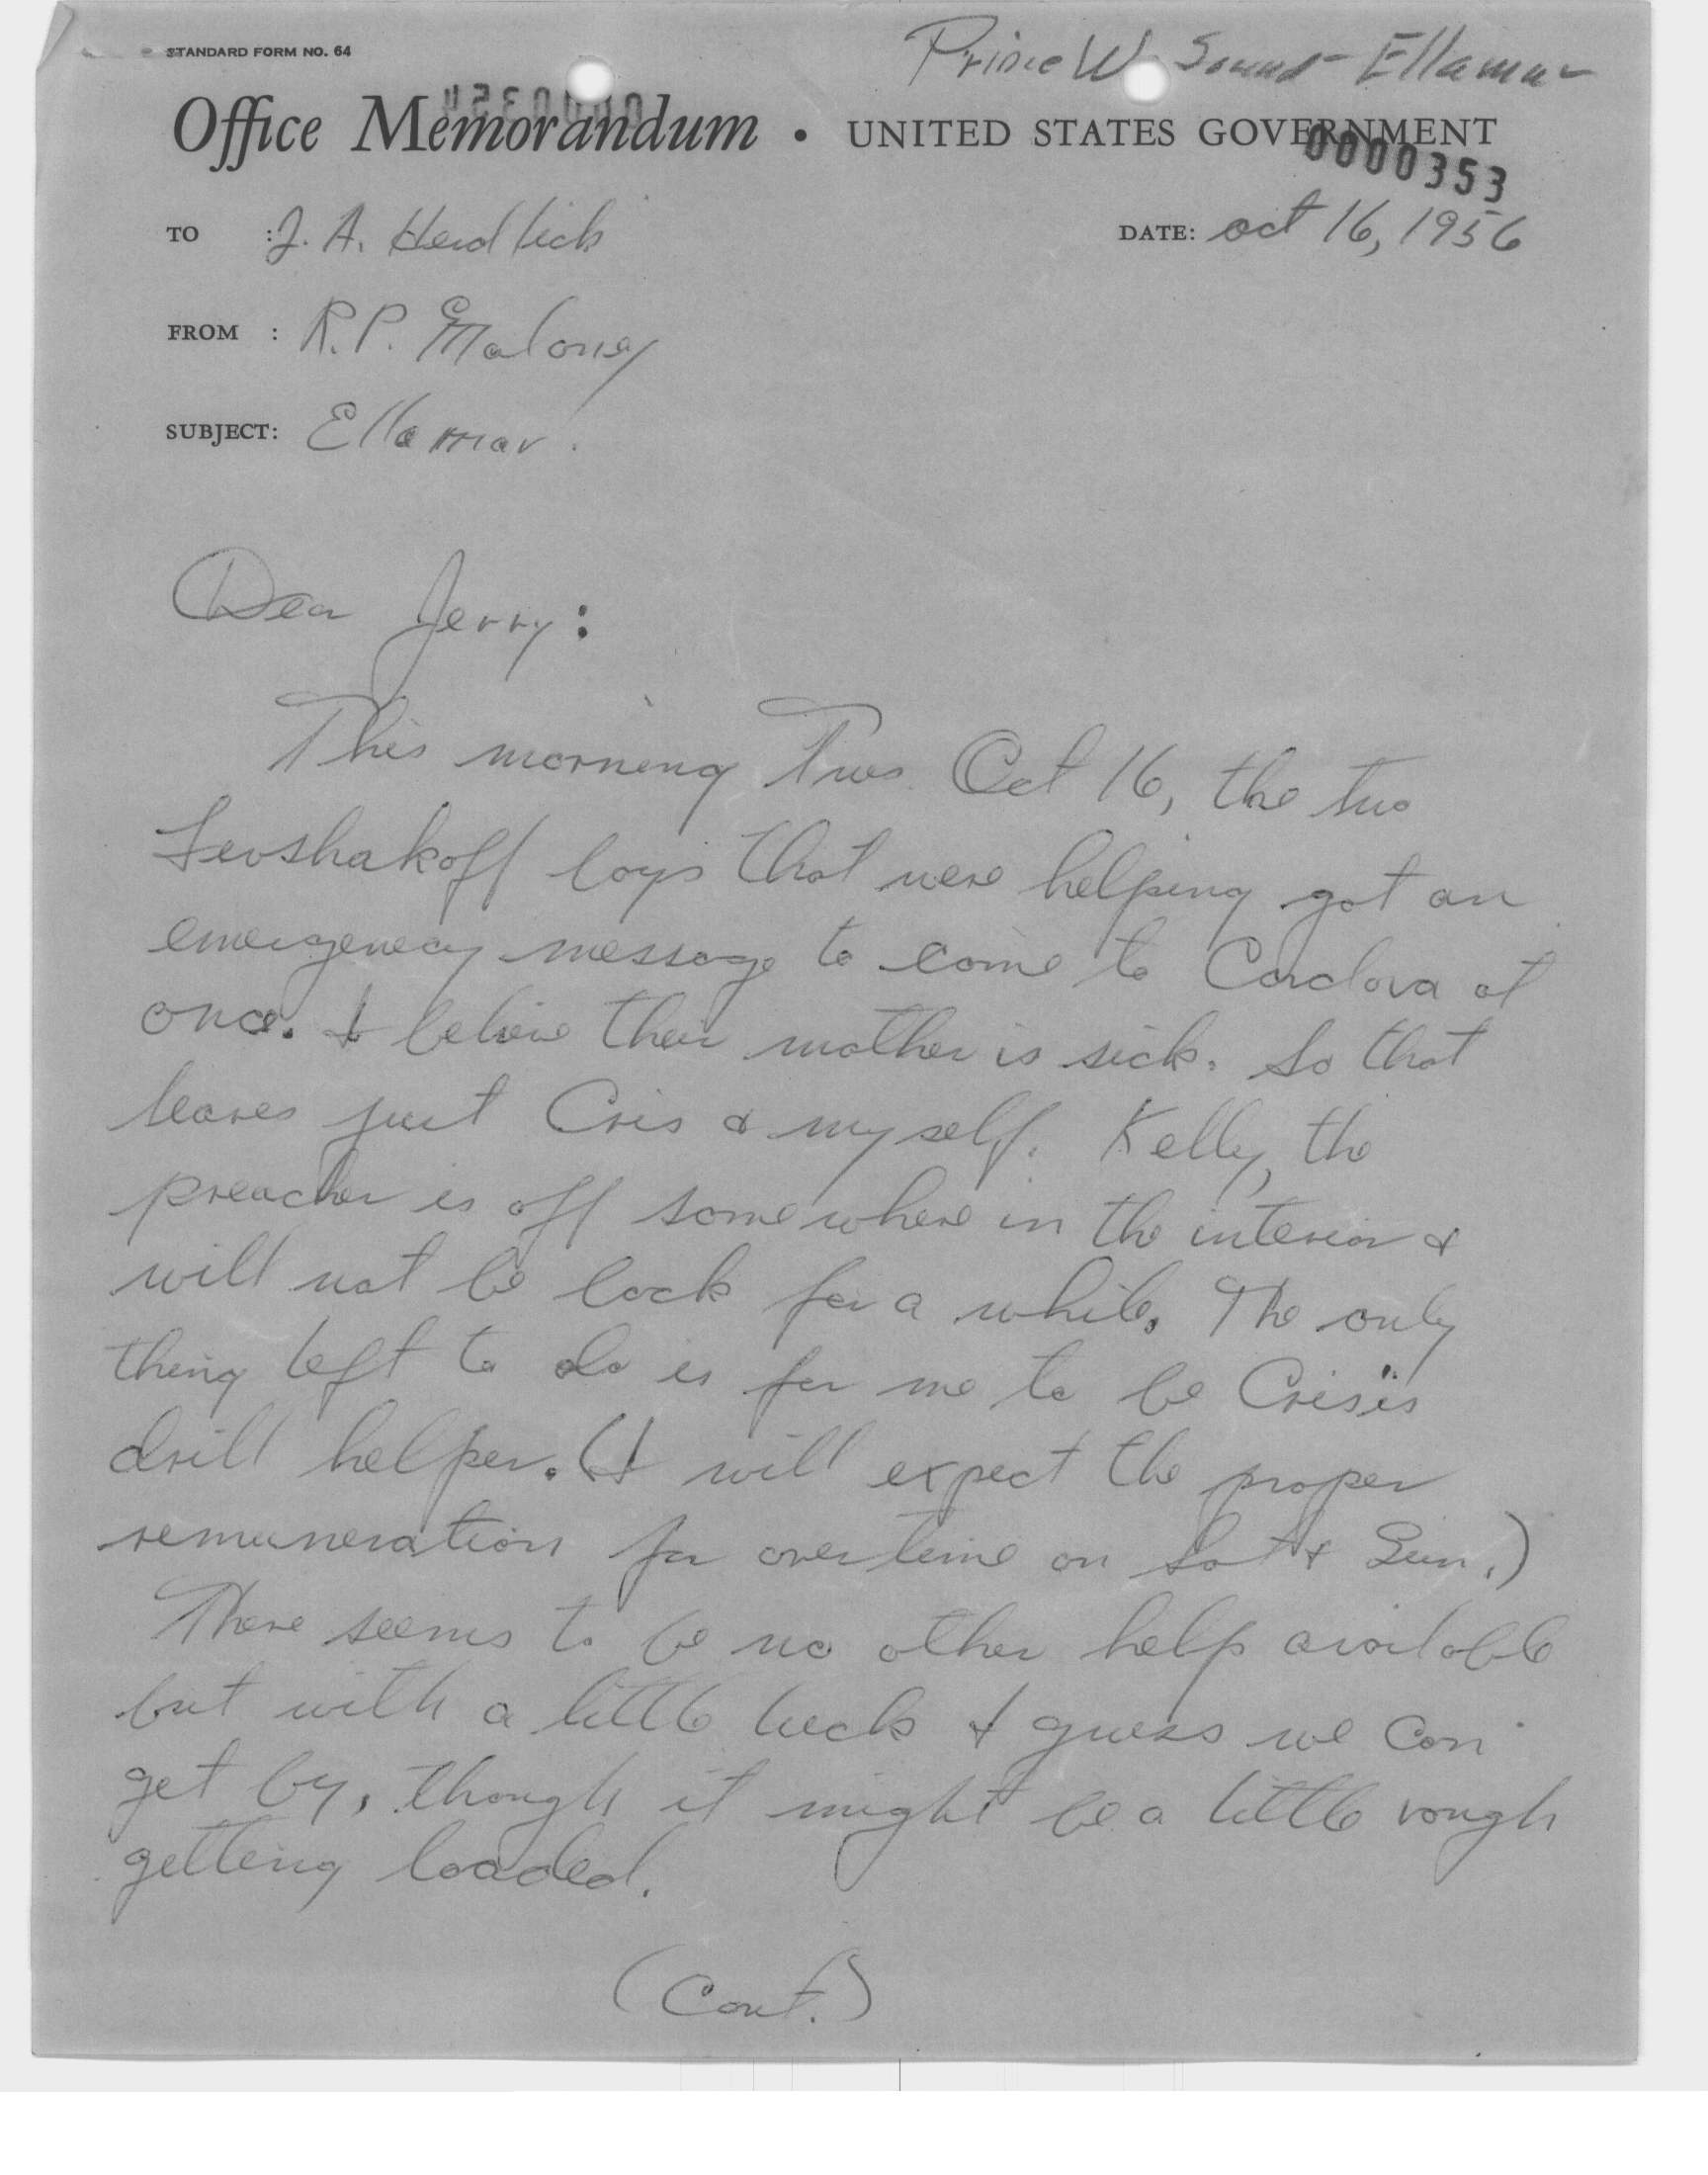 STANDARD FORM NO. 64
Prince W. Sound - Ellamar
Office Memorandum • UNITED STATES GOVERNMENT
0000353
TO : J. A. Herdlick
DATE: Oct 16, 1956
FROM : R.P. Maloney
SUBJECT: Ellamar.
Dear Jerry:
This morning Tues. Oct 16, the two
Levshakoff boys that were helping got an
emergency message to come to Cordova at
once. I believe their mother is sick. So that
leaves just Cris & myself. Kelly, the
preacher is off somewhere in the interior &
will not be back for a while. The only
thing left to do is for me to be Cris's
drill helper. (I will expect the proper
remuneration for overtime on Sat & Sun.)
There seems to be no other help available
but with a little luck I guess we can
get by, though it might be a little rough
getting loaded.
(Cont.)